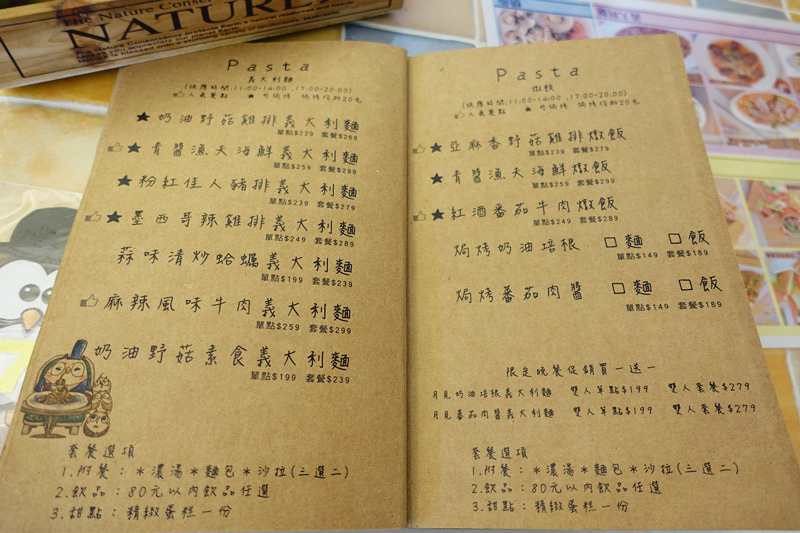 The Nature Conser
NATURE
Pasta
義大利麵
(供應時間:11:00-14:00 ,17:00-20:00)
人氣餐點 ★可焗烤 焗烤均加20元
★奶油野菇雞排義大利麵
單點$229 套餐$269
★青醬漁夫海鮮義大利麵
單點$259 套餐$299
★粉紅佳人豬排義大利麵
單點$239 套餐$279
★墨西哥辣雞排義大利麵
單點$249 套餐$289
蒜味清炒蛤蠣義大利麵
單點$199 套餐$239
麻辣風味牛肉義大利麵
單點$259 套餐$299
奶油野菇素食義大利麵
單點$199 套餐$239
套餐選項
1.附餐:*濃湯*麵包*沙拉(三選二)
2.飲品:80元以內飲品任選
3.甜點:精緻蛋糕一份
Pasta
燉飯
(供應時間:11:00-14:00 ,17:00-20:00)
人氣餐點 ★可焗烤 焗烤均加20元
★亞麻香野菇雞排燉飯
單點$239 套餐$279
★青醬漁夫海鮮燉飯
單點$259 套餐$299
★紅酒番茄牛肉燉飯
單點$249 套餐$289
焗烤奶油培根 □麵 □飯
單點$149 套餐$189
焗烤番茄肉醬 □麵 □飯
單點$149 套餐$189
限定晚餐促銷買一送一
月見奶油培根義大利麵 雙人單點$199 雙人套餐$279
月見番茄肉醬義大利麵 雙人單點$199 雙人套餐$279
套餐選項
1.附餐:*濃湯*麵包*沙拉(三選二)
2.飲品:80元以內飲品任選
3.甜點:精緻蛋糕一份